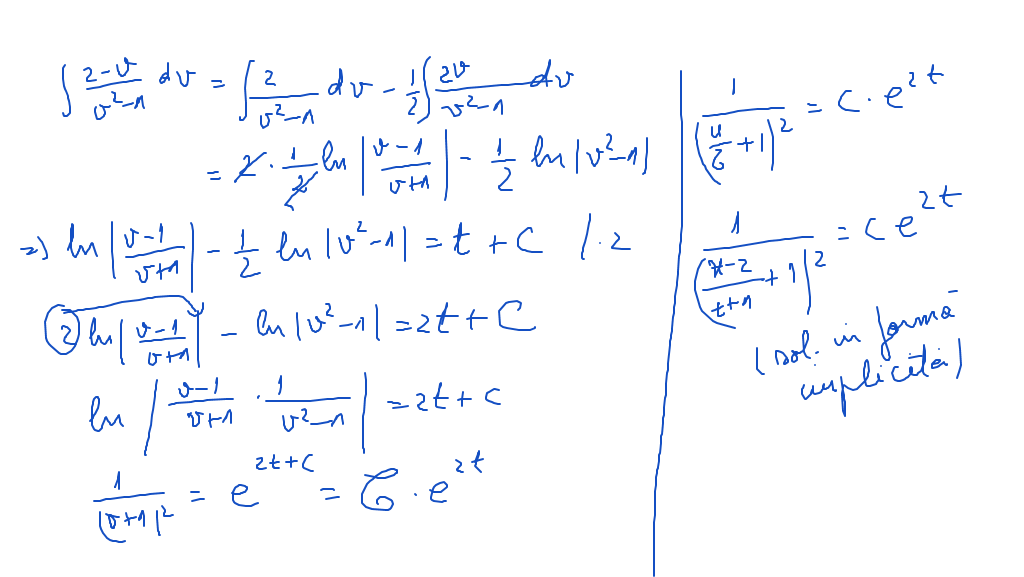 ∫ (2-v)/(v²-1) dv = ∫ 2/(v²-1) dv - 1/2 ∫ 2v/(v²-1) dv
= 2 · 1/2 ln |(v-1)/(v+1)| - 1/2 ln |v²-1|
=> ln |(v-1)/(v+1)| - 1/2 ln |v²-1| = t + C / · 2
2 ln |(v-1)/(v+1)| - ln |v²-1| = 2t + C
ln |(v-1)/(v+1) · 1/(v²-1)| = 2t + C
1/(v+1)² = e^(2t+C) = C · e^(2t)
1/(u/z + 1)² = C · e^(2t)
1/((x-2)/(t+1) + 1)² = C e^(2t)
(sol. in formă
implicită)